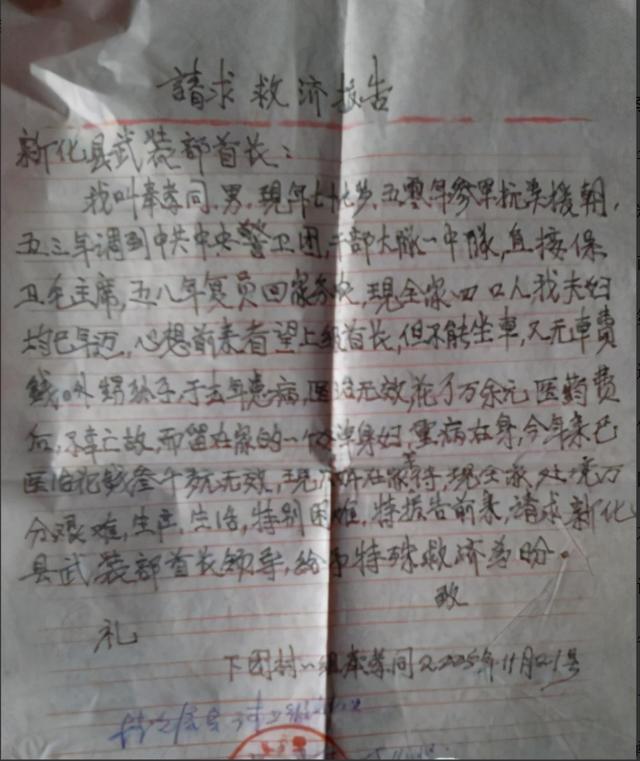 請求救济报告
新化县武装部首长：
我叫奉孝同，男，现年七十七岁，五零年参军抗美援朝，
五三年调到中共中央警卫团，干部大隊一中隊，直接保
卫毛主席，五八年复员回家务农，现全家四口人我夫妇
均已年迈，心想前来看望上级首长，但不能坐車，又无車费
钱。外甥孙子，于去年患病，医治无效花了万余元医药费
后，不幸亡故，而留在家的一个单身妇，重病在身，今年来已
医治花钱叁千多元无效，现在家待，现全家处境万
分艰难，生产、生活，特别困难，特报告前来，請求新化
县武装部首长领导，给予特殊救济为盼。
致
礼
下团村一组奉孝同 2005年11月21号